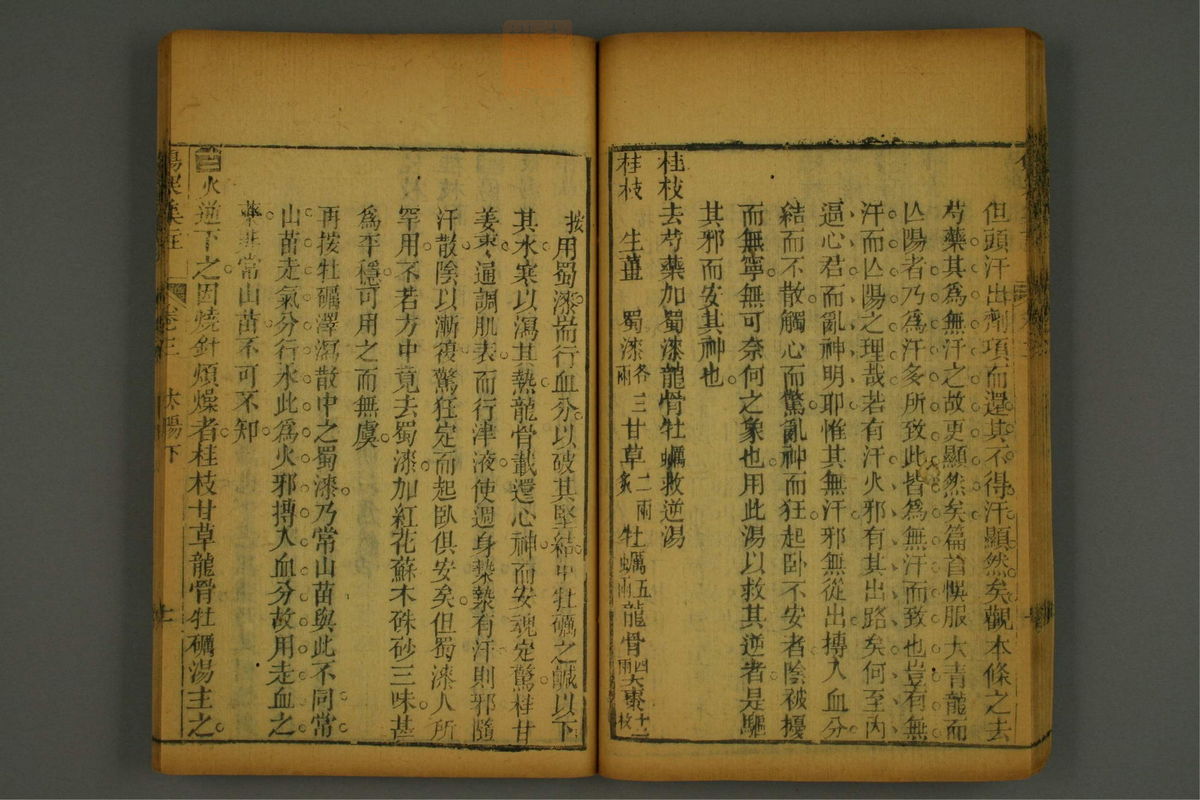 但頭汗出劑項而還其不得汗顯然矣觀本條之去
芍藥其爲無汗之故更顯然矣篇首悞服大青龍而
亾陽者乃爲汗多所致此皆爲無汗而致也豈有無
汗而亾陽之理哉若有汗火邪有其出路矣何至內
逼心君而亂神明耶惟其無汗邪無從出摶入血分
結而不散觸心而驚亂神而狂起卧不安者陰被擾
而無寧無可奈何之象也用此湯以救其逆者是驅
其邪而安其神也
桂枝去芍藥加蜀漆龍骨牡蠣救逆湯
桂枝 生薑 蜀漆各三兩 甘草二兩炙 牡蠣五兩 龍骨四兩 大棗十二枚
按用蜀漆耑行血分以破其堅結中牡礪之鹹以下
其水寒以瀉其熱龍骨載還心神而安魂定驚桂甘
姜棗遍調肌表而行津液使週身漐漐有汗則邪隨
汗散陰以漸復驚狂定而起臥俱安矣但蜀漆人所
罕用不若方中竟去蜀漆加紅花蘇木硃砂三味甚
爲平穩可用之而無虞
再按牡礪澤瀉散中之蜀漆乃常山苗與此不同常
山苗走氣分行水此爲火邪摶入血分故用走血之
藥非常山苗不可不知
火逆下之因燒針煩燥者桂枝甘草龍骨牡礪湯主之
卷三 太陽下